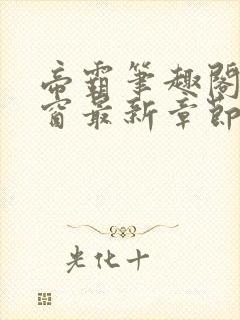 帝霸笔趣阁
窗最新章节
光化十